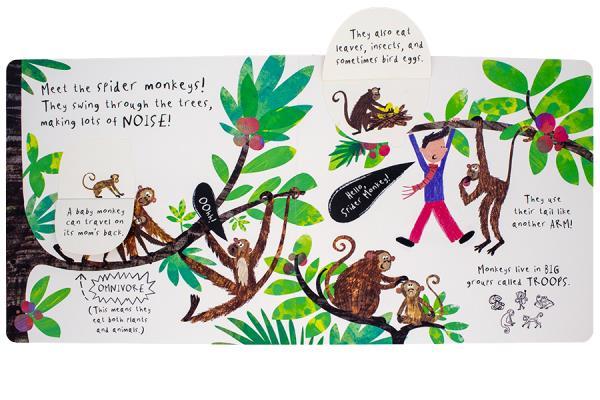 Meet the spider monkeys!
They swing through the trees,
making lots of NOISE!
A baby monkey
can travel on
its mom's back.
OOhh!
OMNIVORE
(This means they
eat both plants
and animals.)
They also eat
leaves, insects, and
sometimes bird eggs.
Hello,
Spider Monkey!
They use
their tail like
another ARM!
Monkeys live in BIG
groups called TROOPS.